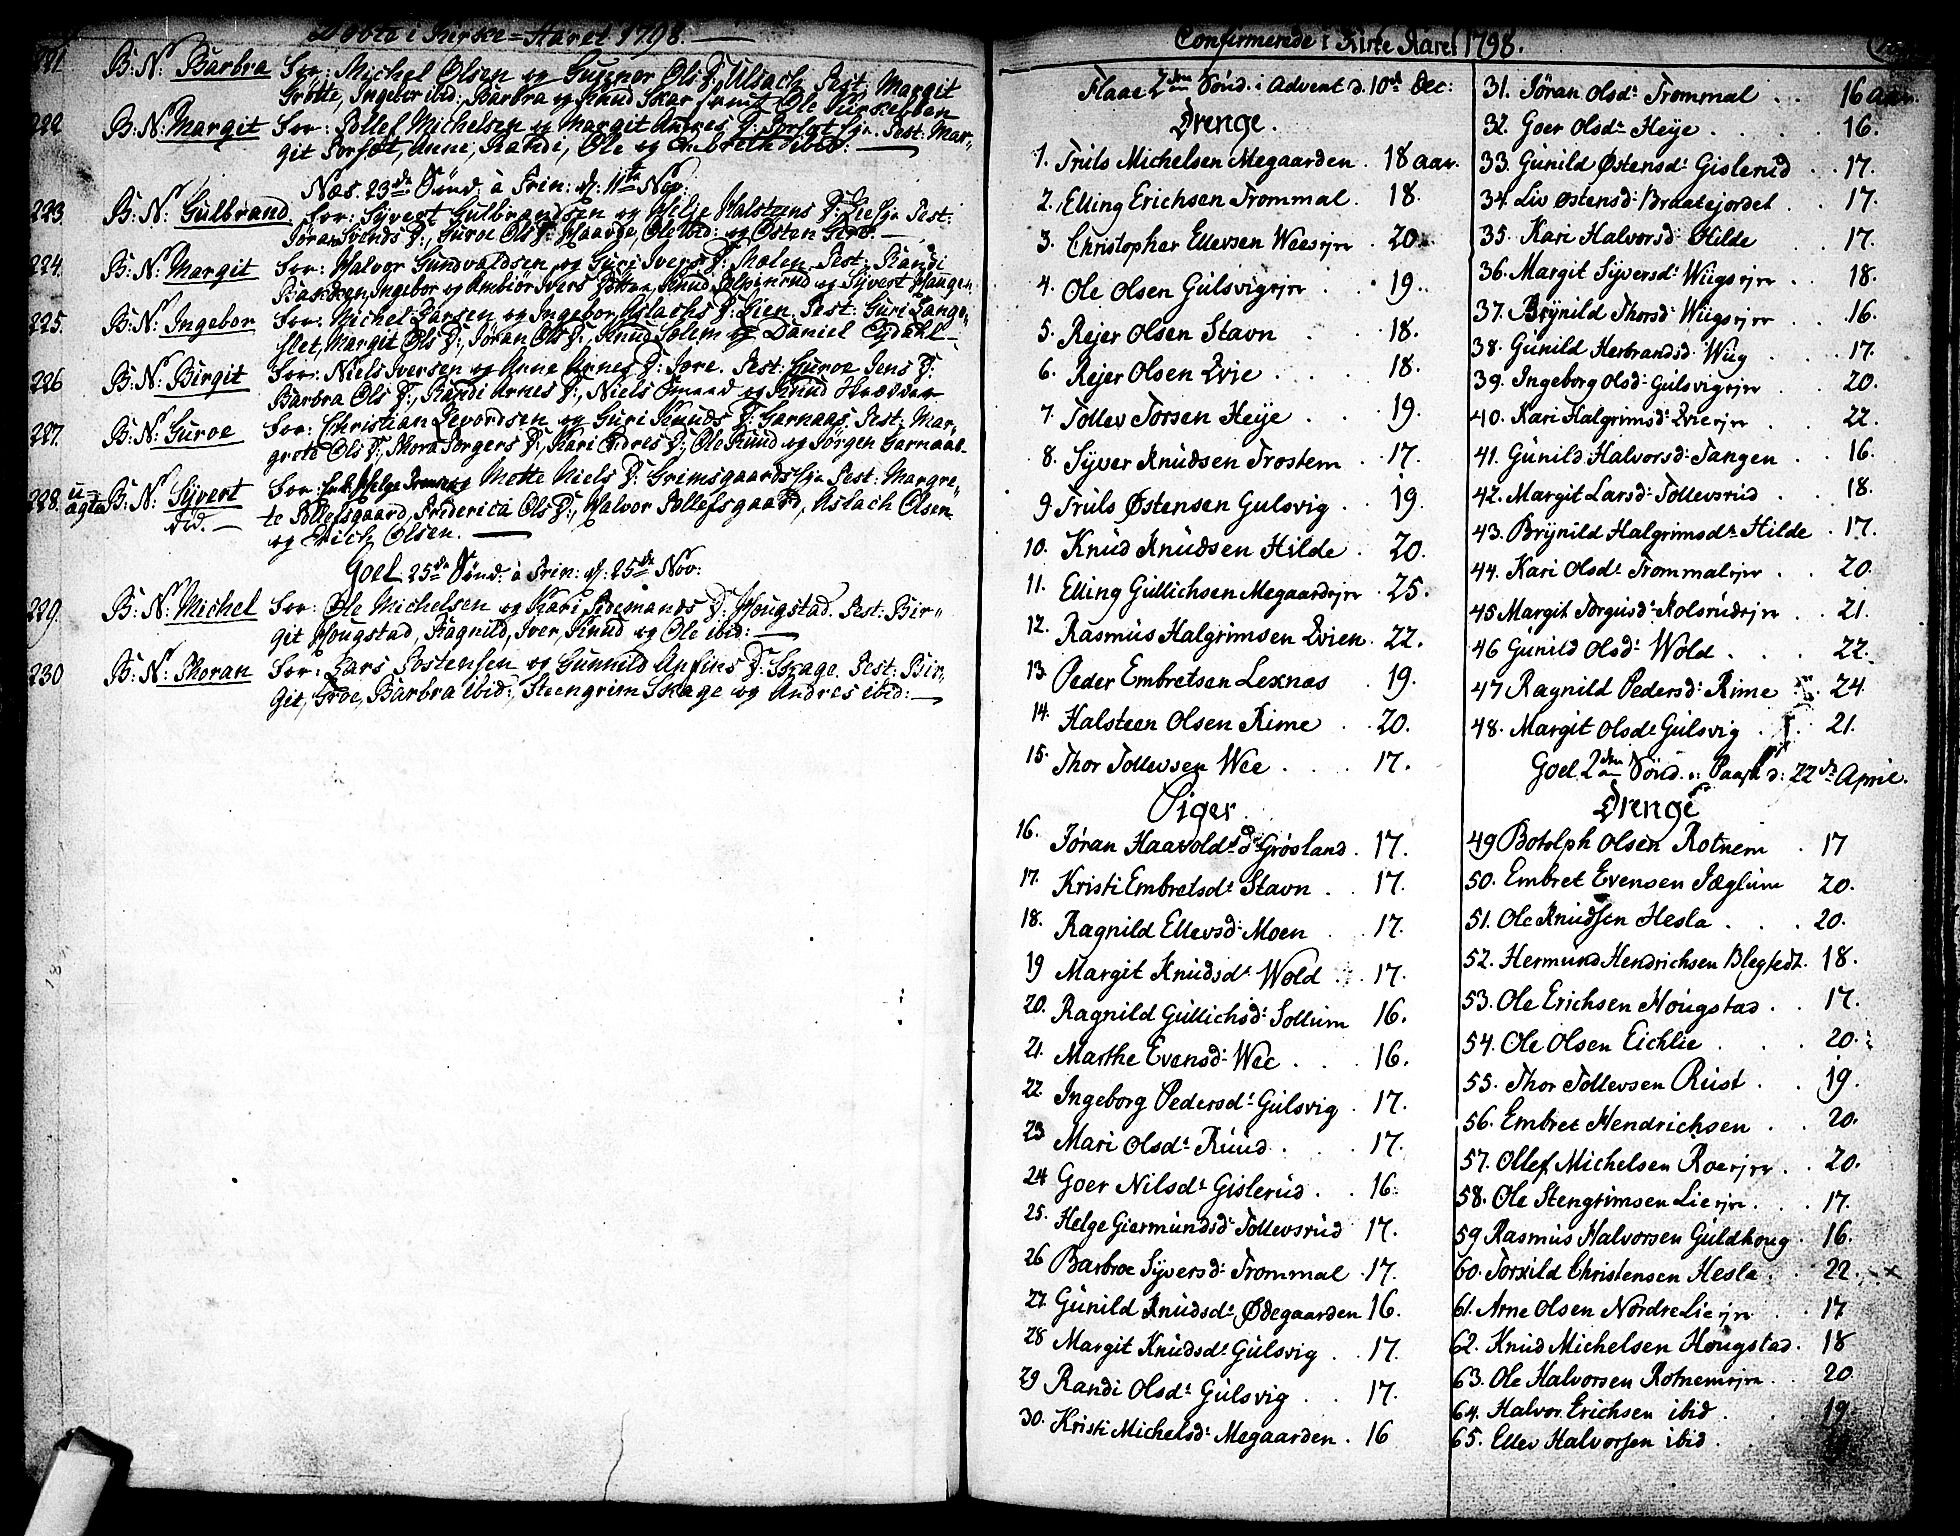 Døbte i Kirke-Aaret 1798.
221 B: N: Barbra For: Michel Olsen og Gunnor Ols D: Ulsach. Test: Margit
Grøtte, Ingebor ibid: Barbra og Knud Skar samt Ole
222 B: N: Margit For: Tollef Michelsen og Margit Andres D: Test: Mar-
git Anne, Randi, Ole og Embreth ibid:
Næs. 23de Sønd: à Trin: d: 11te Nov:
223 B: N: Gulbrand For: Syvert Gulbrandsen og Hilje Halsteens D: Test:
Jøran Svends D:, Guroe Ols D: Haavde, Ole ibid: og Østen
224. B: N: Margit For: Halvor Gundvaldsen og Guri Ivers D: Molen. Test: Randi
Ingebor og Ambiør Ivers Døttre, Knud og Syvert Haugen
225. B: N: Ingebor For: Michel Larsen og Ingebor Aslachs D: Lien. Test: Guri Lange-
slet, Margit Ols D:, Jøran Ols D:, Knud Solem og Daniel
226 B: N: Birgit For: Niels Iversen og Anne Arnes D: Test: Guroe Jens D:
Barbra Ols D:, Randi Arnes D:, Niels og Knud
227. B: N: Guroe For: Christian Levordsen og Guri Knuds D: Garnaas. Test: Mar-
grete Ols D:, Thora D:, Kari D:, Ole Ruud og Jørgen Garnaas
228. u-ægte B: N: Syvert For: Mette Niels D: Grimsgaards Test: Margre-
did. te Tollefsgaard, Friderica Ols D:, Halvor Tollefsgaard, Aslach Olsen
og Erich Olsen.
Goel. 25de Sønd: à Trin: d: 25de Nov:
229. B: N: Michel For: Ole Michelsen og Kari D: Hougstad. Test: Bir-
git Hougstad, Ragnild, Iver, Knud og Ole ibid:
230 B: N: Thoran For: Lars og Gunnild Anfins D: Skage. Test: Bir-
git, Groe, Barbra ibid:, Steengrim Skage og Andres ibid:
Confirmerede i Kirke Aaret 1798.
Flaae 2den Sønd. i Advent d. 10de Dec:
Drenge.
1. Truls Michelsen Megaarden. 18 aar.
2. Elling Erichsen Trommal. 18.
3. Christopher Ellevsen Weeejer . 20.
4. Ole Olsen Gulsvigejer . . 19.
5. Rejer Olsen Stavn . 18.
6. Rejer Olsen Evie . . . . 18.
7. Tollev Torsen Heÿe . . 19.
8. Syver Knudsen Trostem . 17.
9 Truls Østensen Gulsvig . . 19.
10. Knud Knudsen Hilde . 20.
11. Elling Gullichsen Megaardejer . 25.
12. Rasmus Halgrimsen Evien . 22.
13. Peder Embretsen Lexnæs . 19.
14. Halsteen Olsen Rime . . 20.
15. Thor Tollevsen Wee . . . 17.
Piger
16. Jøran Haavoldsd: Grøsland . 17.
17. Kristi Embretsd: Stavn . . 17.
18. Ragnild Ellevsd: Moen . 17.
19 Margit Knudsd: Wold . 17.
20. Ragnild Gullichsd: Sollum 16.
21. Marthe Evensd: Wee . . . 16.
22. Ingeborg Pedersd: Gulsvig . 17.
23 Mari Olsd: Ruud . . . 17.
24 Goer Nilsd: Gislerud . . 16.
25. Helge Giermundsd: Tollevsrud 17.
26 Barbroe Syversd: Trommal . 17.
27. Gunild Knudsd: Ødegaarden 16.
28 Margit Knudsd: Gulsvig . . 17.
29 Randi Olsd: Gulsvig . . 17.
30. Kristi Michelsd: Megaarden . 16
31. Jøran Olsd: Trommal . . 16 aar.
32. Goer Olsd: Heÿe . . . . 16.
33. Gunild Østensd: Gislerud . . 17.
34. Liv Østensd: Braatejordet . . 17.
35. Kari Halvorsd: Hilde . 17.
36. Margit Syversd: Wiigsejer . . 18.
37. Brynild Thorsd: Wiigsejer . . 16.
38. Gunild Herbrandsd: Wiig . . 17.
39. Ingeborg Olsd: Gulsvigejer . 20.
40. Kari Halgrimsd: Evieejer . . 22.
41. Gunild Halvorsd: Tangen . . 16.
42. Margit Larsd: Tollevsrud . 18.
43. Brynild Halgrimsd: Hilde . 17.
44. Kari Olsd: Trommalejer . . 20.
45 Margit Torgusd: Kolsrudejer . . 21.
46 Gunild Olsd: Wold . . . 22.
47 Ragnild Pedersd: Rime . 24.
48. Margit Olsd: Gulsvig . . 21.
Goel 2den Sønd. Paask d: 22de April.
Drenge
49 Botolph Olsen Rotnem . 17
50. Embret Evensen Jæglum 20.
51. Ole Knudsen Hesla . . . 20.
52. Hermund Hendrichsen Blegtedt. 18.
53. Ole Erichsen Hougstad . . 17.
54. Ole Olsen Eichlie . . . 20.
55. Thor Tollevsen Rust . . 19.
56. Embret Hendrichsen . . 20.
57. Ollef Michelsen Roeejer . . 20.
58. Ole Stengrimsen Lieejer . . 17.
59 Rasmus Halvorsen Guldhoug . 16.
60. Torkild Christensen Hesla . . 22. x
61. Arne Olsen Nordre Lieejer . 17
62. Knud Michelsen Hougstad . 18
63. Ole Halvorsen Rotnemejer . . 20.
64. Halvor Erichsen ibid . . . 19.
65. Ellev Halvorsen ibid .